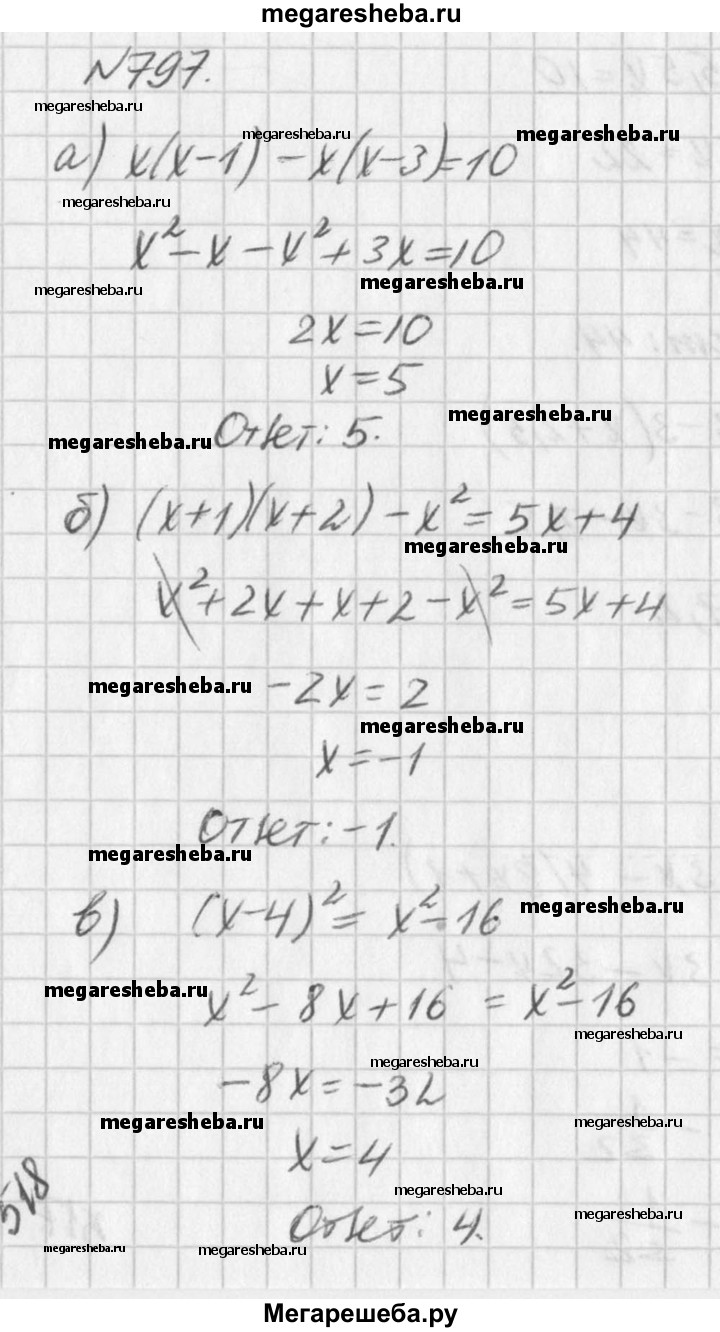 megaresheba.ru
N797.
megaresheba.ru
megaresheba.ru
megaresheba.ru
а) x(x-1) - x(x-3)=10
megaresheba.ru
x² - x - x² + 3x = 10
megaresheba.ru
megaresheba.ru
2x = 10
x = 5
megaresheba.ru
megaresheba.ru
Ответ: 5.
б) (x+1)(x+2) - x² = 5x+4
megaresheba.ru
x² + 2x + x + 2 - x² = 5x+4
megaresheba.ru
-2x = 2
megaresheba.ru
x = -1
Ответ: -1.
megaresheba.ru
в) (x-4)² = x² - 16
megaresheba.ru
megaresheba.ru
x² - 8x + 16 = x² - 16
megaresheba.ru
megaresheba.ru
-8x = -32
megaresheba.ru
x = 4
518
megaresheba.ru
Ответ: 4.
megaresheba.ru
megaresheba.ru
megaresheba.ru
Мегарешеба.ру